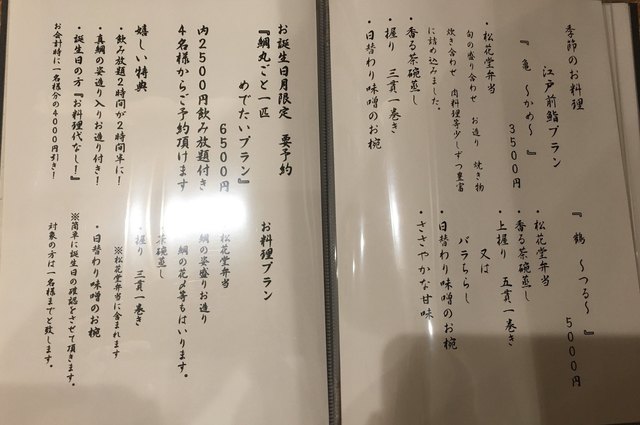 季節のお料理
江戸前鮨プラン
『 亀 ～かめ～ 』
3500円
・松花堂弁当
旬の盛り合わせ お造り 焼き物
炊き合わせ 肉料理等少しずつ豊富
に詰め込みました。
・香る茶碗蒸し
・握り 三貫一巻き
・日替わり味噌のお椀
『 鶴 ～つる～ 』
5000円
・松花堂弁当
・香る茶碗蒸し
・上握り 五貫一巻き
又は
バラちらし
・日替わり味噌のお椀
・ささやかな甘味
お誕生日月限定 要予約
『鯛丸ごと一匹
めでたいプラン』
6500円
内2500円飲み放題付き
4名様からご予約頂けます
嬉しい特典
・飲み放題2時間が2時間半に!
・真鯛の姿造り入りお造り付き!
・誕生日の方『お料理代なし!』
お会計時に一名様分の4000円引き!
お料理プラン
松花堂弁当
鯛の姿盛りお造り
鯛の花〆等もはいります。
茶碗蒸し
・握り 三貫一巻き
※松花堂弁当に含まれます
・日替わり味噌のお椀
※簡単に誕生日の確認をさせて頂きます。
対象の方は一名様までと致します。